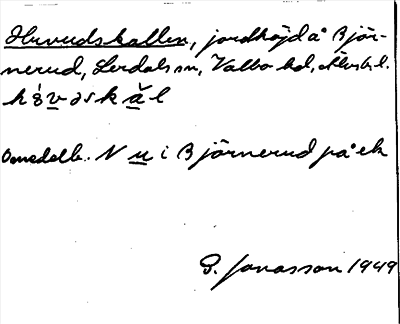 Huvudskallen, jordhöjd å Björ-
nerud, Lerdals sn, Valbo hd, Älvsb. l.
Omedelb. N u i Björnerud på ek
G. Jonasson 1949